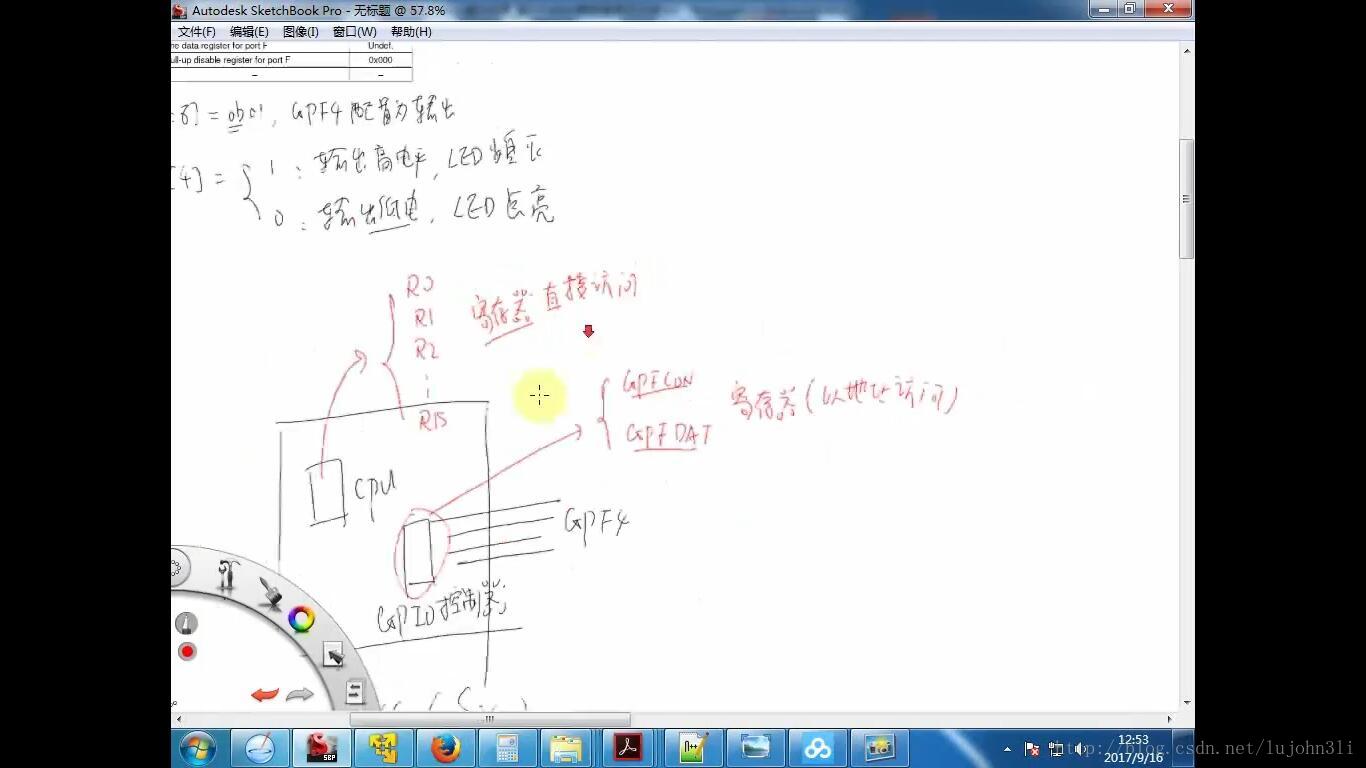 Autodesk SketchBook Pro - 无标题 @ 57.8%
文件(F) 编辑(E) 图像(I) 窗口(W) 帮助(H)
he data register for port F Undef.
ull-up disable register for port F 0x000
– –
:8] = 0b01, GPF4配置为输出
[4] = { 1 : 输出高电平, LED熄灭
0 : 输出低电, LED点亮
R0
R1
R2
R15
寄存器 直接访问
GPFCON
GPFDAT
寄存器(以地址访问)
CPU
GPF4
GPIO控制器
12:53
2017/9/16
http://blog.csdn.net/lujohn3li